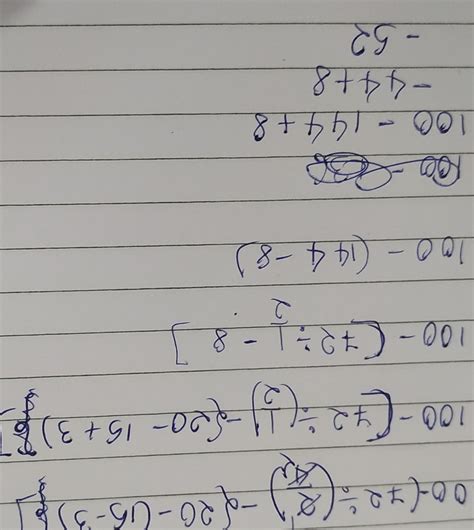 00-(72÷(2/4)-{20-(15-3)
100-[72÷(1/2)-{20-15+3)
100-[72÷1/2-8]
100-(144-8)
100-
100-144+8
-44+8
-52